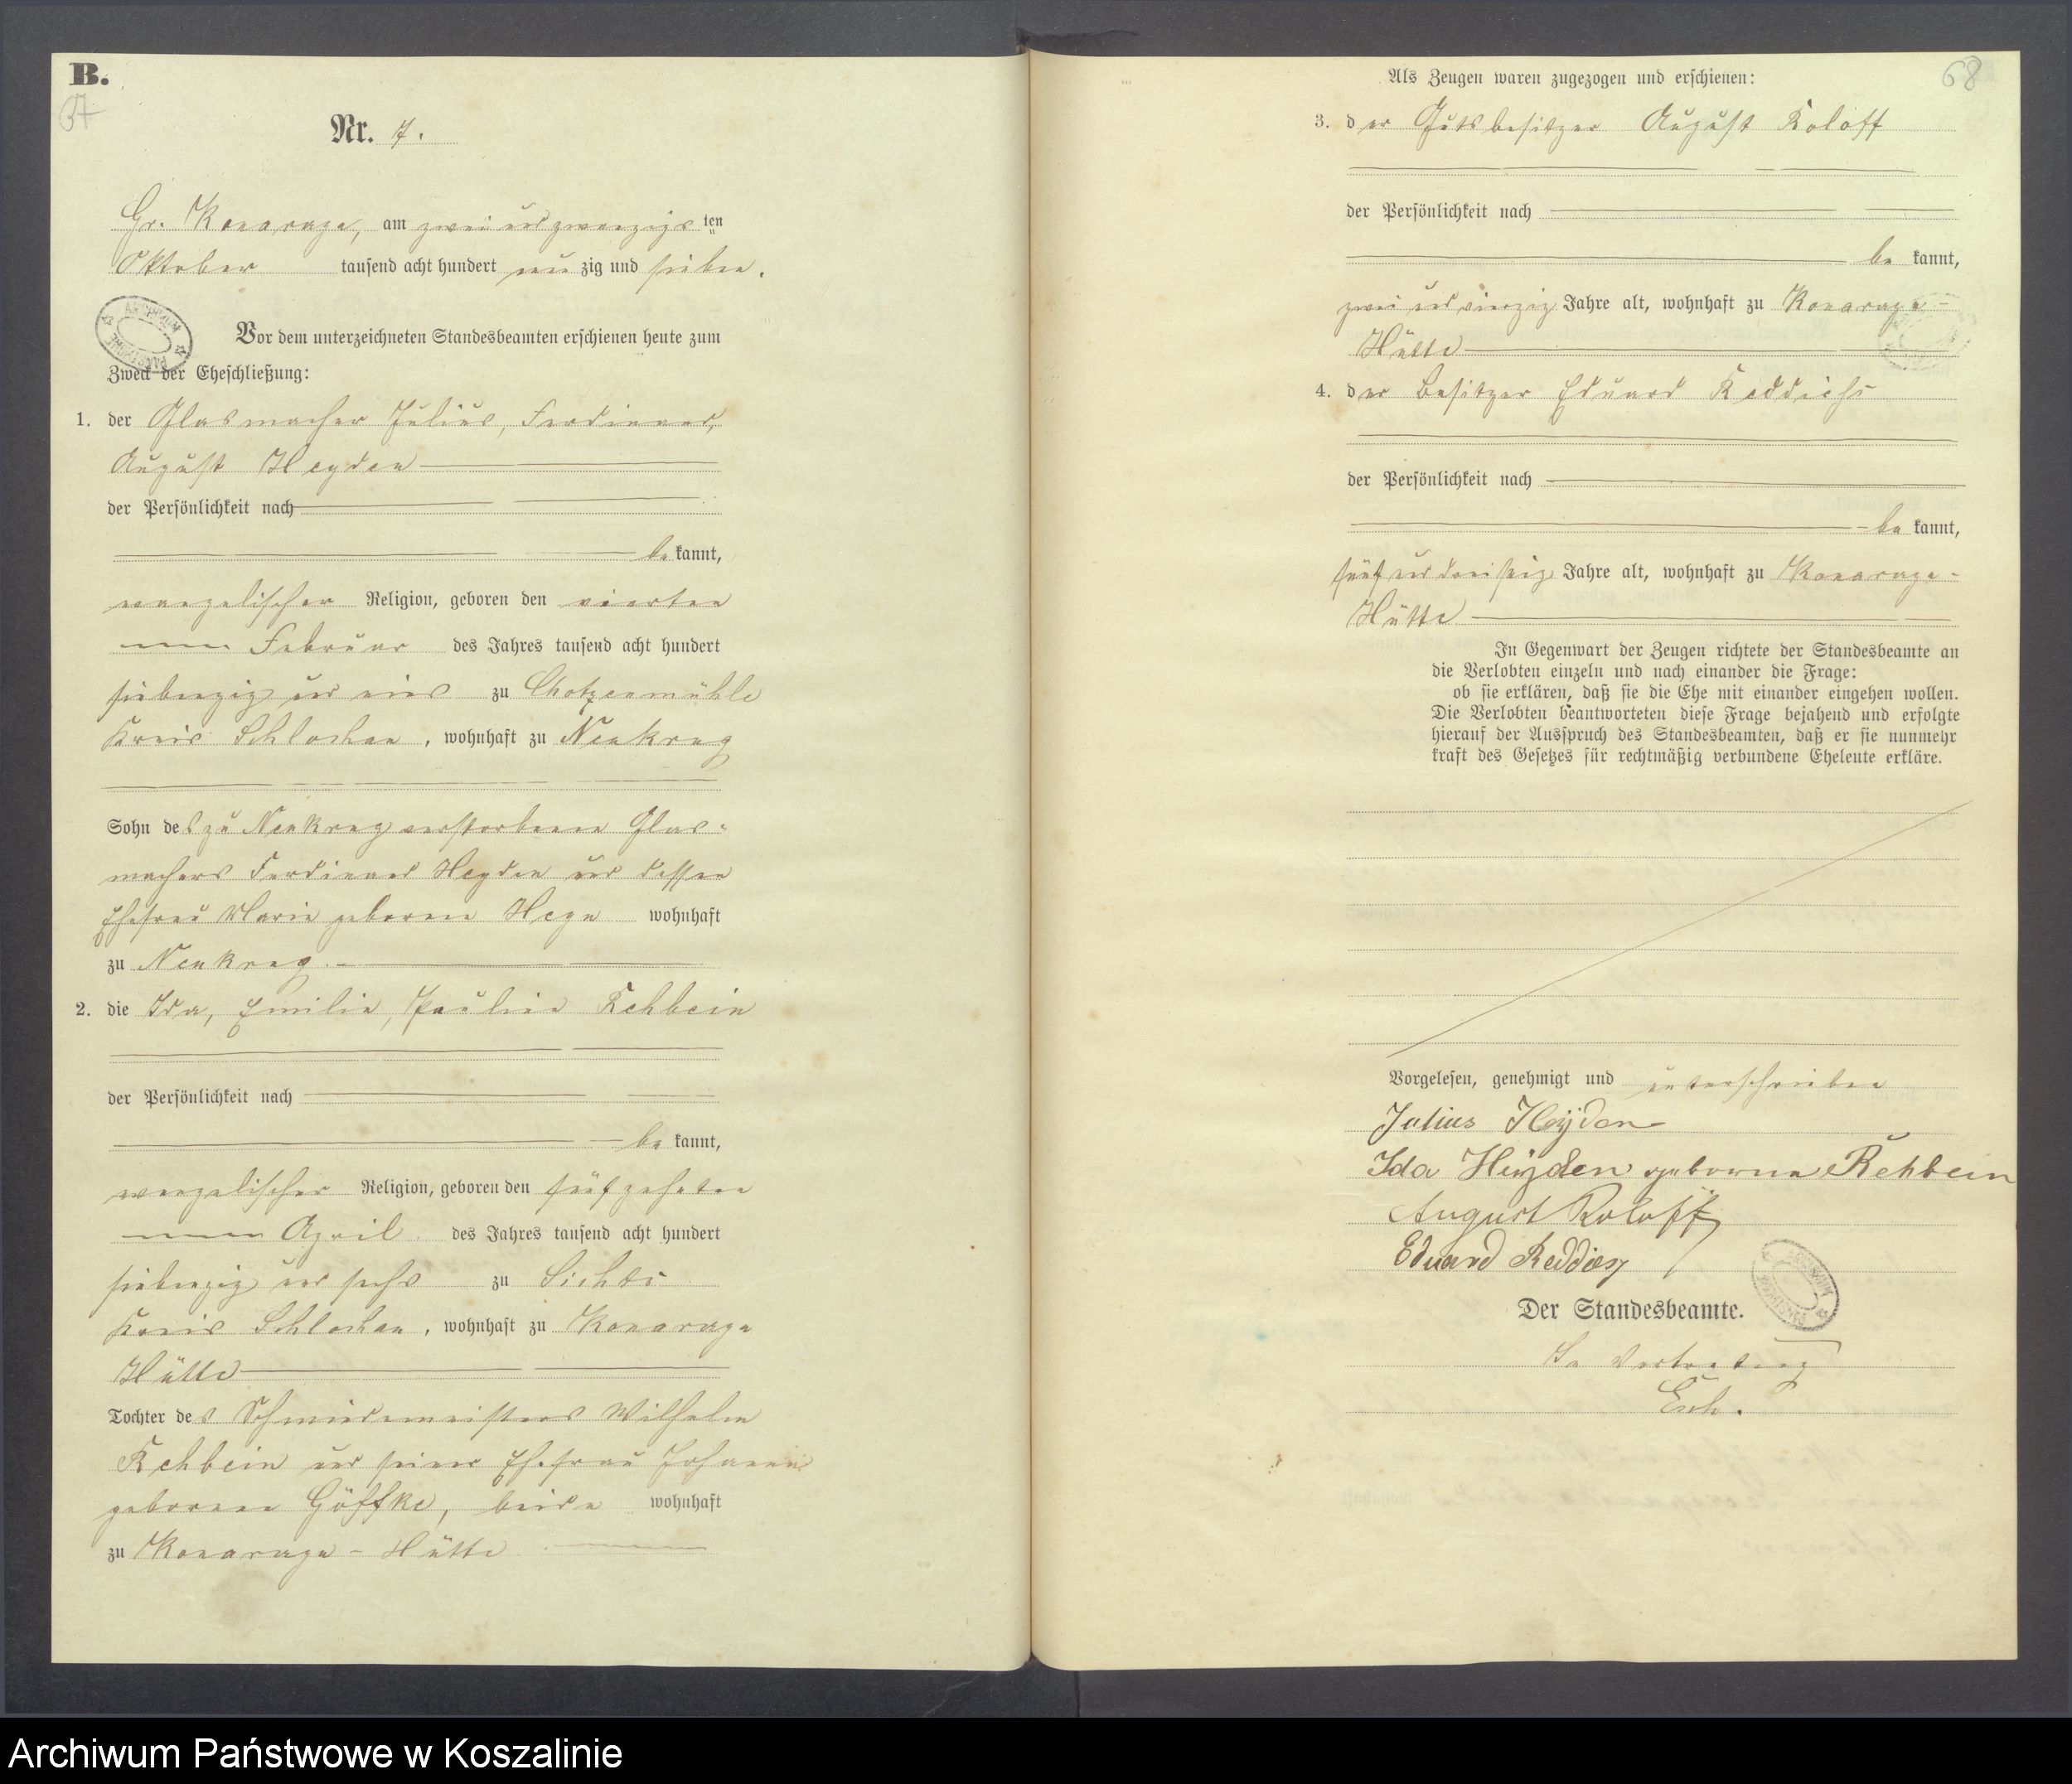 B.
Nr. 7.
Gr. Konarzyn, am zwei und zwanzigsten
Oktober tausend acht hundert neunzig und sieben.
Vor dem unterzeichneten Standesbeamten erschienen heute zum
Zweck der Eheschließung:
1. der Glasmacher Julius, Ferdinand,
August Heyden
der Persönlichkeit nach
be kannt,
evangelischer Religion, geboren den vierten
Februar des Jahres tausend acht hundert
siebenzig und eins zu Chotzenmühle
Kreis Schlochau, wohnhaft zu Neukrug
Sohn des zu Neukrug verstorbenen Glas-
machers Ferdinand Heyden und dessen
Ehefrau Marie geborene wohnhaft
zu Neukrug
2. die Ida, Emilie, Pauline Rehbein
der Persönlichkeit nach
be kannt,
evangelischer Religion, geboren den fünfzehnten
April des Jahres tausend acht hundert
siebenzig und sechs zu Sichts
Kreis Schlochau, wohnhaft zu Konarzyn
Hütte
Tochter des Schmiedemeisters Wilhelm
Rehbein und seiner Ehefrau Johanne
geborenen Göffke, beide wohnhaft
zu Konarzyn-Hütte
68
Als Zeugen waren zugezogen und erschienen:
3. der Gutsbesitzer August Roloff
der Persönlichkeit nach
be kannt,
zwei und vierzig Jahre alt, wohnhaft zu Konarzyn-
Hütte
4. der Besitzer Eduard
der Persönlichkeit nach
be kannt,
fünf und dreißig Jahre alt, wohnhaft zu Konarzyn-
Hütte
In Gegenwart der Zeugen richtete der Standesbeamte an
die Verlobten einzeln und nach einander die Frage:
ob sie erklären, daß sie die Ehe mit einander eingehen wollen.
Die Verlobten beantworteten diese Frage bejahend und erfolgte
hierauf der Ausspruch des Standesbeamten, daß er sie nunmehr
kraft des Gesetzes für rechtmäßig verbundene Eheleute erkläre.
Vorgelesen, genehmigt und unterschrieben
Julius Heyden
Ida Heyden geborene Rehbein
August Roloff
Eduard
Der Standesbeamte.
In Vertretung
Archiwum Państwowe w Koszalinie